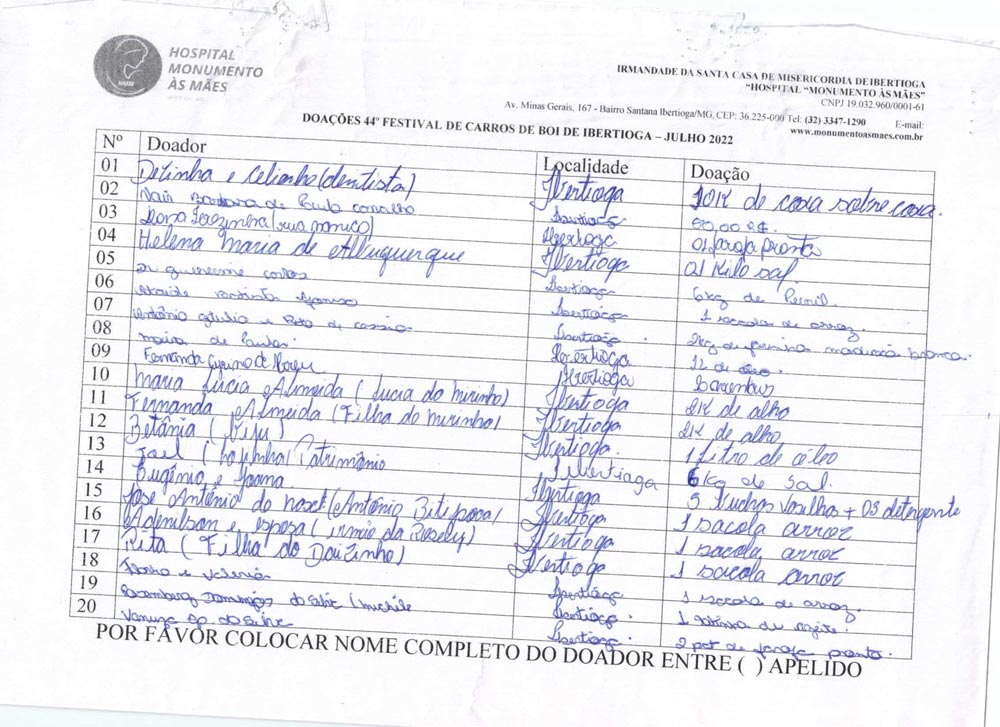 HOSPITAL
MONUMENTO
ÀS MÃES
IRMANDADE DA SANTA CASA DE MISERICORDIA DE IBERTIOGA
“HOSPITAL “MONUMENTO ÀS MÃES”
CNPJ 19.032.960/0001-61
Av. Minas Gerais, 167 - Bairro Santana Ibertioga/MG, CEP: 36.225-000 Tel: (32) 3347-1290 E-mail:
www.monumentoasmaes.com.br
DOAÇÕES 44º FESTIVAL DE CARROS DE BOI DE IBERTIOGA – JULHO 2022
Nº Doador Localidade Doação
01 Detinha e Celinho (dentista) Ibertioga 10K de coxa sobre coxa.
02 Nair Barbosa de Paula Carvalho Ibertioga 50,00 R$.
03 Dona Terezinha (rua ) Ibertioga 01 farofa pronta
04 Helena Maria de Albuquerque Ibertioga 01 Kilo sal.
05 Dr Guilherme Ibertioga 6kg de Pernil.
06 Batista Afonso Ibertioga 1 sacola de arroz.
07 Antônio e de Cassia Ibertioga 2kg de farinha branca.
08 Maira de Paula. Ibertioga 12 de
09 Fernanda de Ibertioga
10 Maria Lúcia Almeida (Lucia do Mirinho) Ibertioga 2K de alho
11 Fernanda Almeida (Filha do Mirinho) Ibertioga 2K de alho
12 Betânia (Biju) Ibertioga. 1 litro de óleo
13 Joel ( ) Patrimônio Ibertioga 6kg de sal.
14 Eugênio e Joana Ibertioga 5 Buchas Vasilha + 03 detergente
15 José Antônio do (Antônio ) Ibertioga 1 sacola arroz
16 Adenilson e esposa (irmão da Rosely) Ibertioga 1 sacola arroz
17 Rita (Filha do ) Ibertioga 1 sacola arroz
18 e Valeria Ibertioga 1 sacola de arroz.
19 Rosemberg Domingos da Silva / Michele Ibertioga. 1 de azeite.
20 Vanuza Ap. da Silva Ibertioga 2 pct de farofa pronta.
POR FAVOR COLOCAR NOME COMPLETO DO DOADOR ENTRE ( ) APELIDO